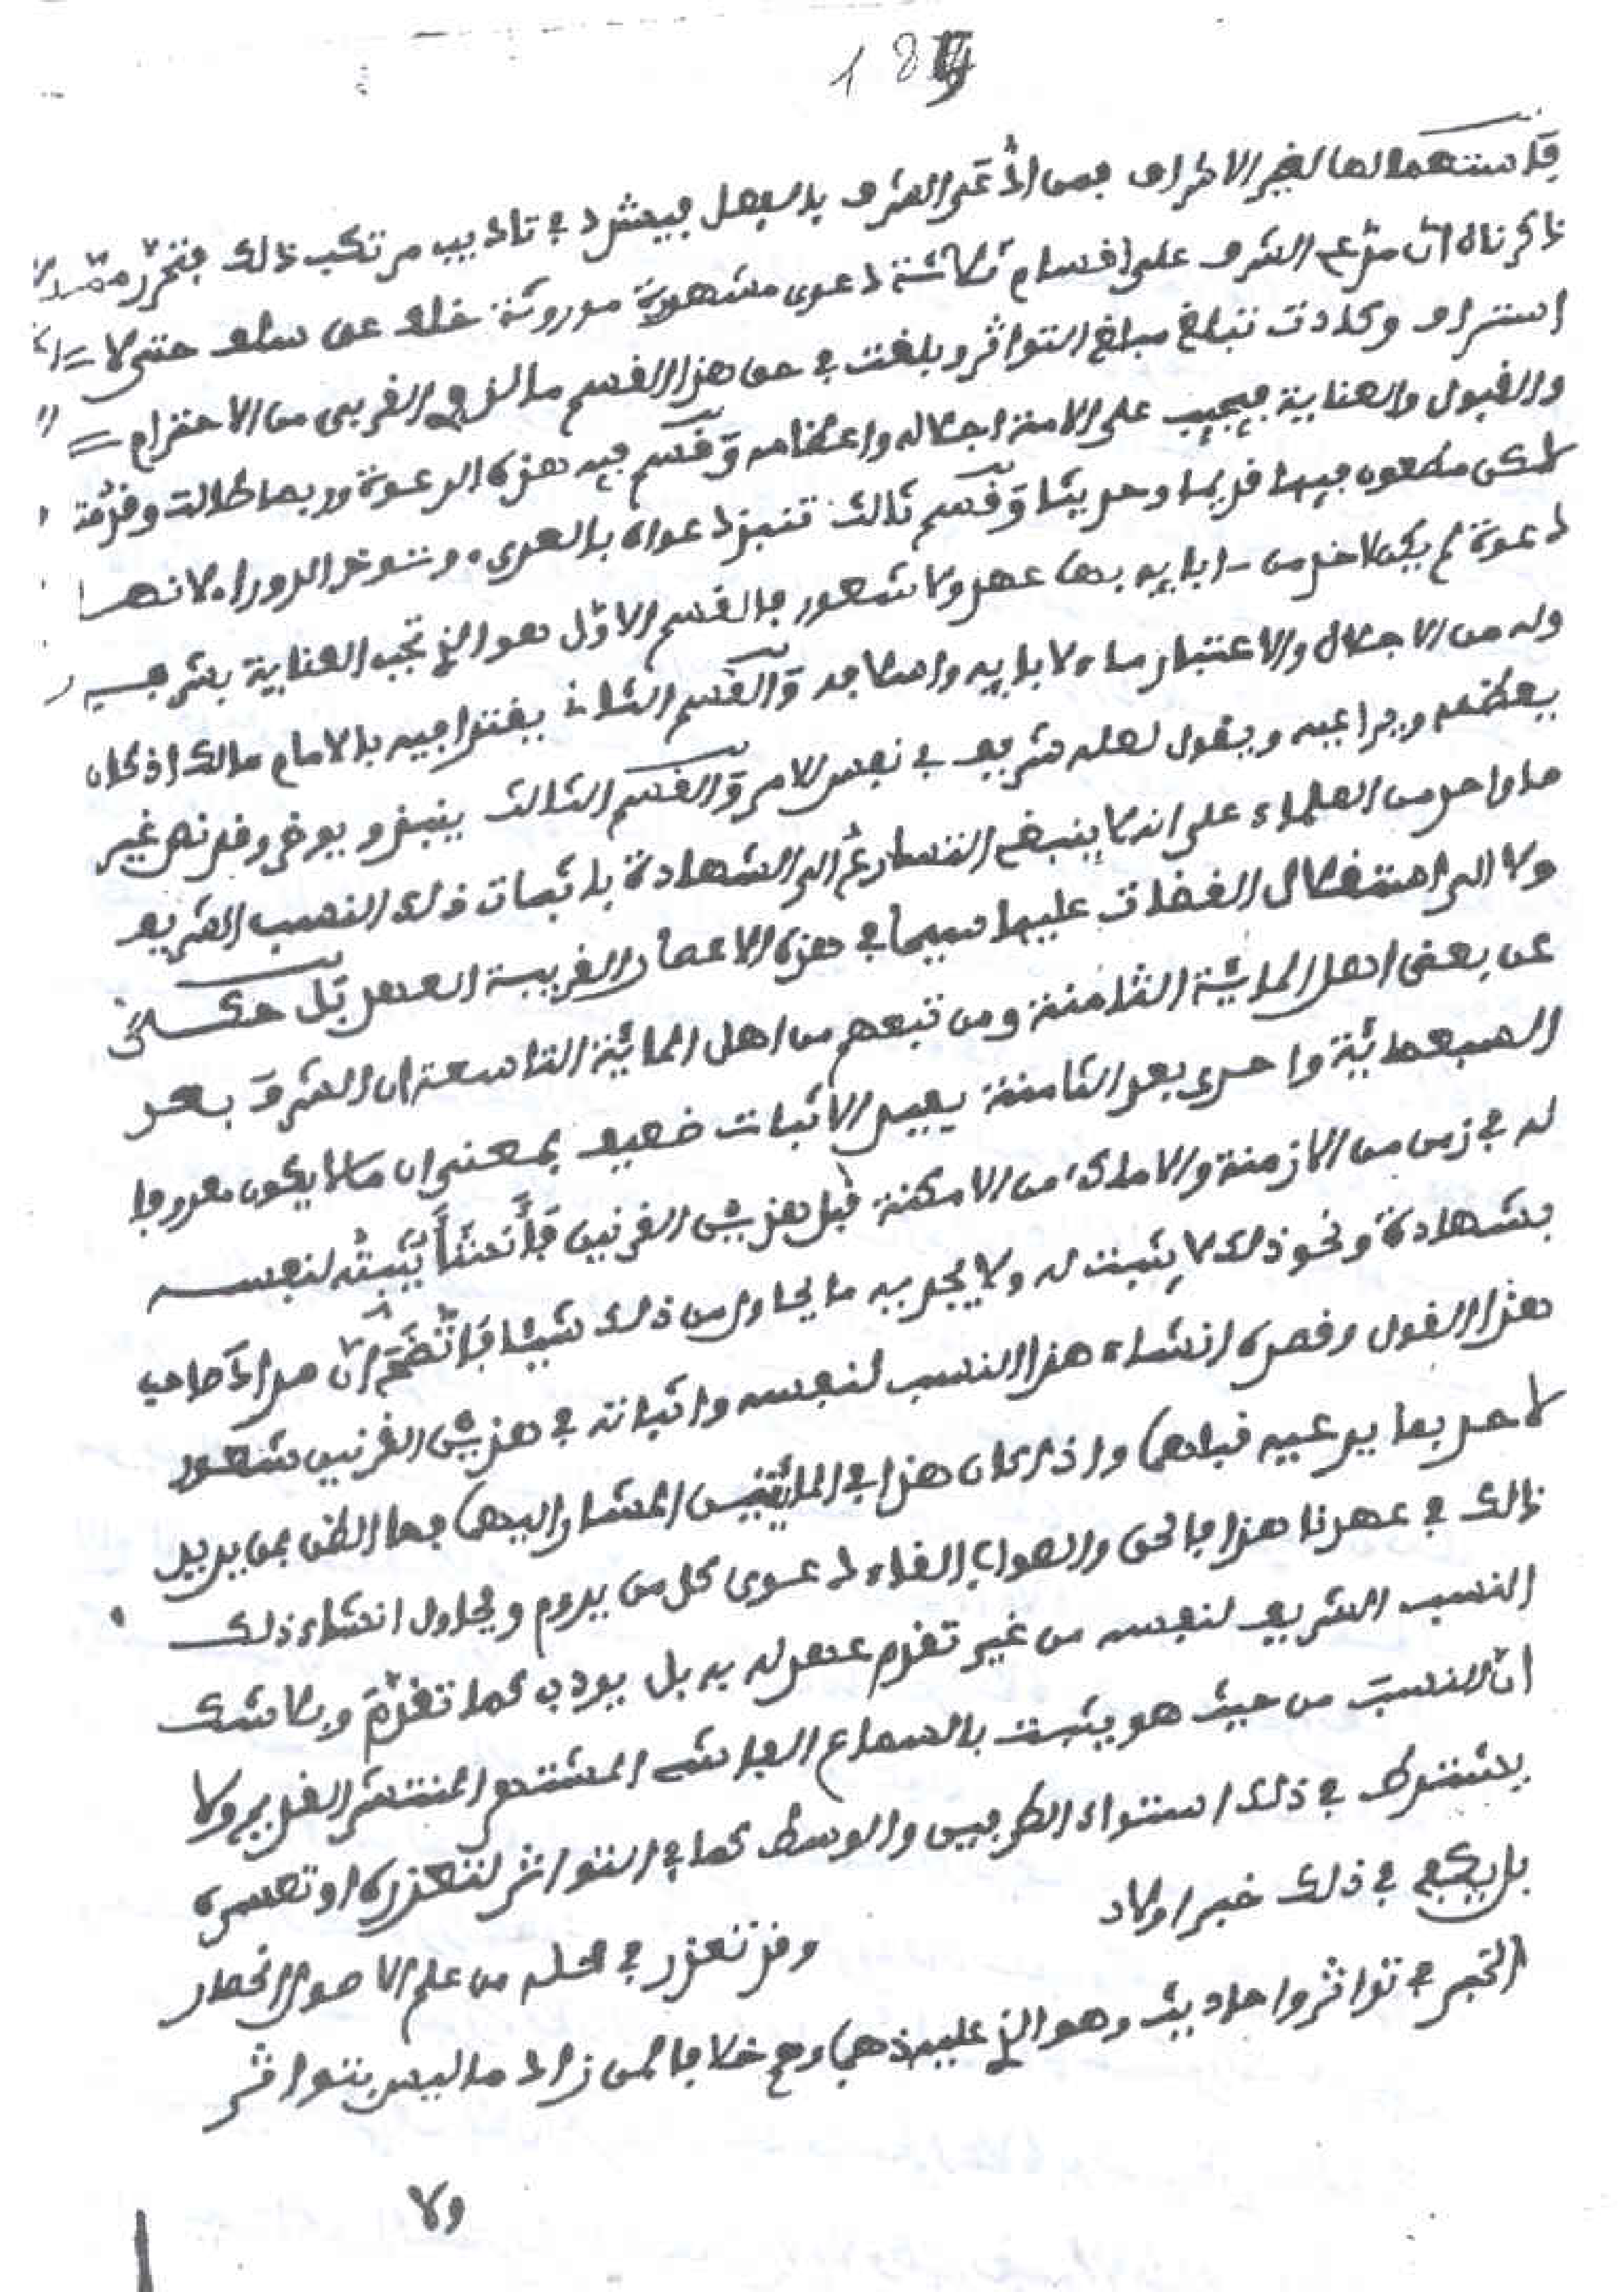 184
فاستعمالها لغير الاشراف فمن ادعى الشرف بالفعل فيعثر في تاديب مرتكب ذلك فتحرر مما
ذكرناه ان مدعي الشرف على اقسام ثلاثة دعوى مشهورة موروثة خلف عن سلف حتى لا
استراب وكادت تبلغ مبلغ التواتر وبلغت في حق هذا القسم مالزم الفريق من الاحترام
والقبول والعناية فيجب على الامة اجلاله واعظامه وقسم فيه هذه الدعوة وربما طالت وقدمت
لاكن مطعون فيها قديما وحديثا وقسم ثالث تنبذ دعواه بالعرى وشوخر للورا لانها
دعوة لم يكن لاحد من ءابايه بها عهد ولا شعور فالقسم الاول هو الذي تجب العناية بشرفه
وله من الاجلال والاعتبار ما لابايه واسلافه والقسم الثاني يقتدا فيه بالامام مالك اذ كان
يعظمه ويراعيه ويقول لعله شريف في نفس الامر والقسم الثالث ينبذ ويوخر وقد نص غير
ما واحد من العلماء على انه لا ينبغي التسارع الى الشهادة باثبات ذلك النسب الشريف
ولا الى استعجال القضات عليها سيما في هذه الاعصار القريبة العهد بل حكي
عن بعض اهل الماية الثامنة ومن تبعهم من اهل الماية التاسعة ان الشرف بعد
السبعماية واحرى بعد الثامنة يفيد الاثبات ضعيف بمعنى ان ما لا يكون معروفا
له في زمن من الازمنة والاماكن من الامكنة قبل هذين القرنين فانشأ يثبته لنفسه
بشهادة ونحو ذلك لا يثبت له ولا يجديه ما يحاول من ذلك شيئا فاتضح ان مراد صاحب
هذا القول وقصده انشاء هذا النسب لنفسه واثباته في هذين القرنين شعور
لاحد بما يدعيه قبلهما واذا كان هذا في المايتين المشار اليهما فما الظن بمن يريد
ذلك في عصرنا هذا فالحق والصواب الغاء دعوى كل من يروم ويحاول انشاء ذلك
النسب الشريف لنفسه من غير تقدم عهد له به بل يودب كما تقدم وبلا شك
ان النسب من حيث هو يثبت بالسماع الفاشي المشتهر المنتشر القديم ولا
يشترط في ذلك استواء الطرفين والوسط كما في التواتر لتعذره او تعسره
بل يكفي في ذلك خبر اولاد وقد تقرر في محله من علم الاصول انحصار
الخبر في تواتر واحاديث وهو الذي عليه ذهبا وهم خلافا لمن زاد ما ليس بتواتر
ولا